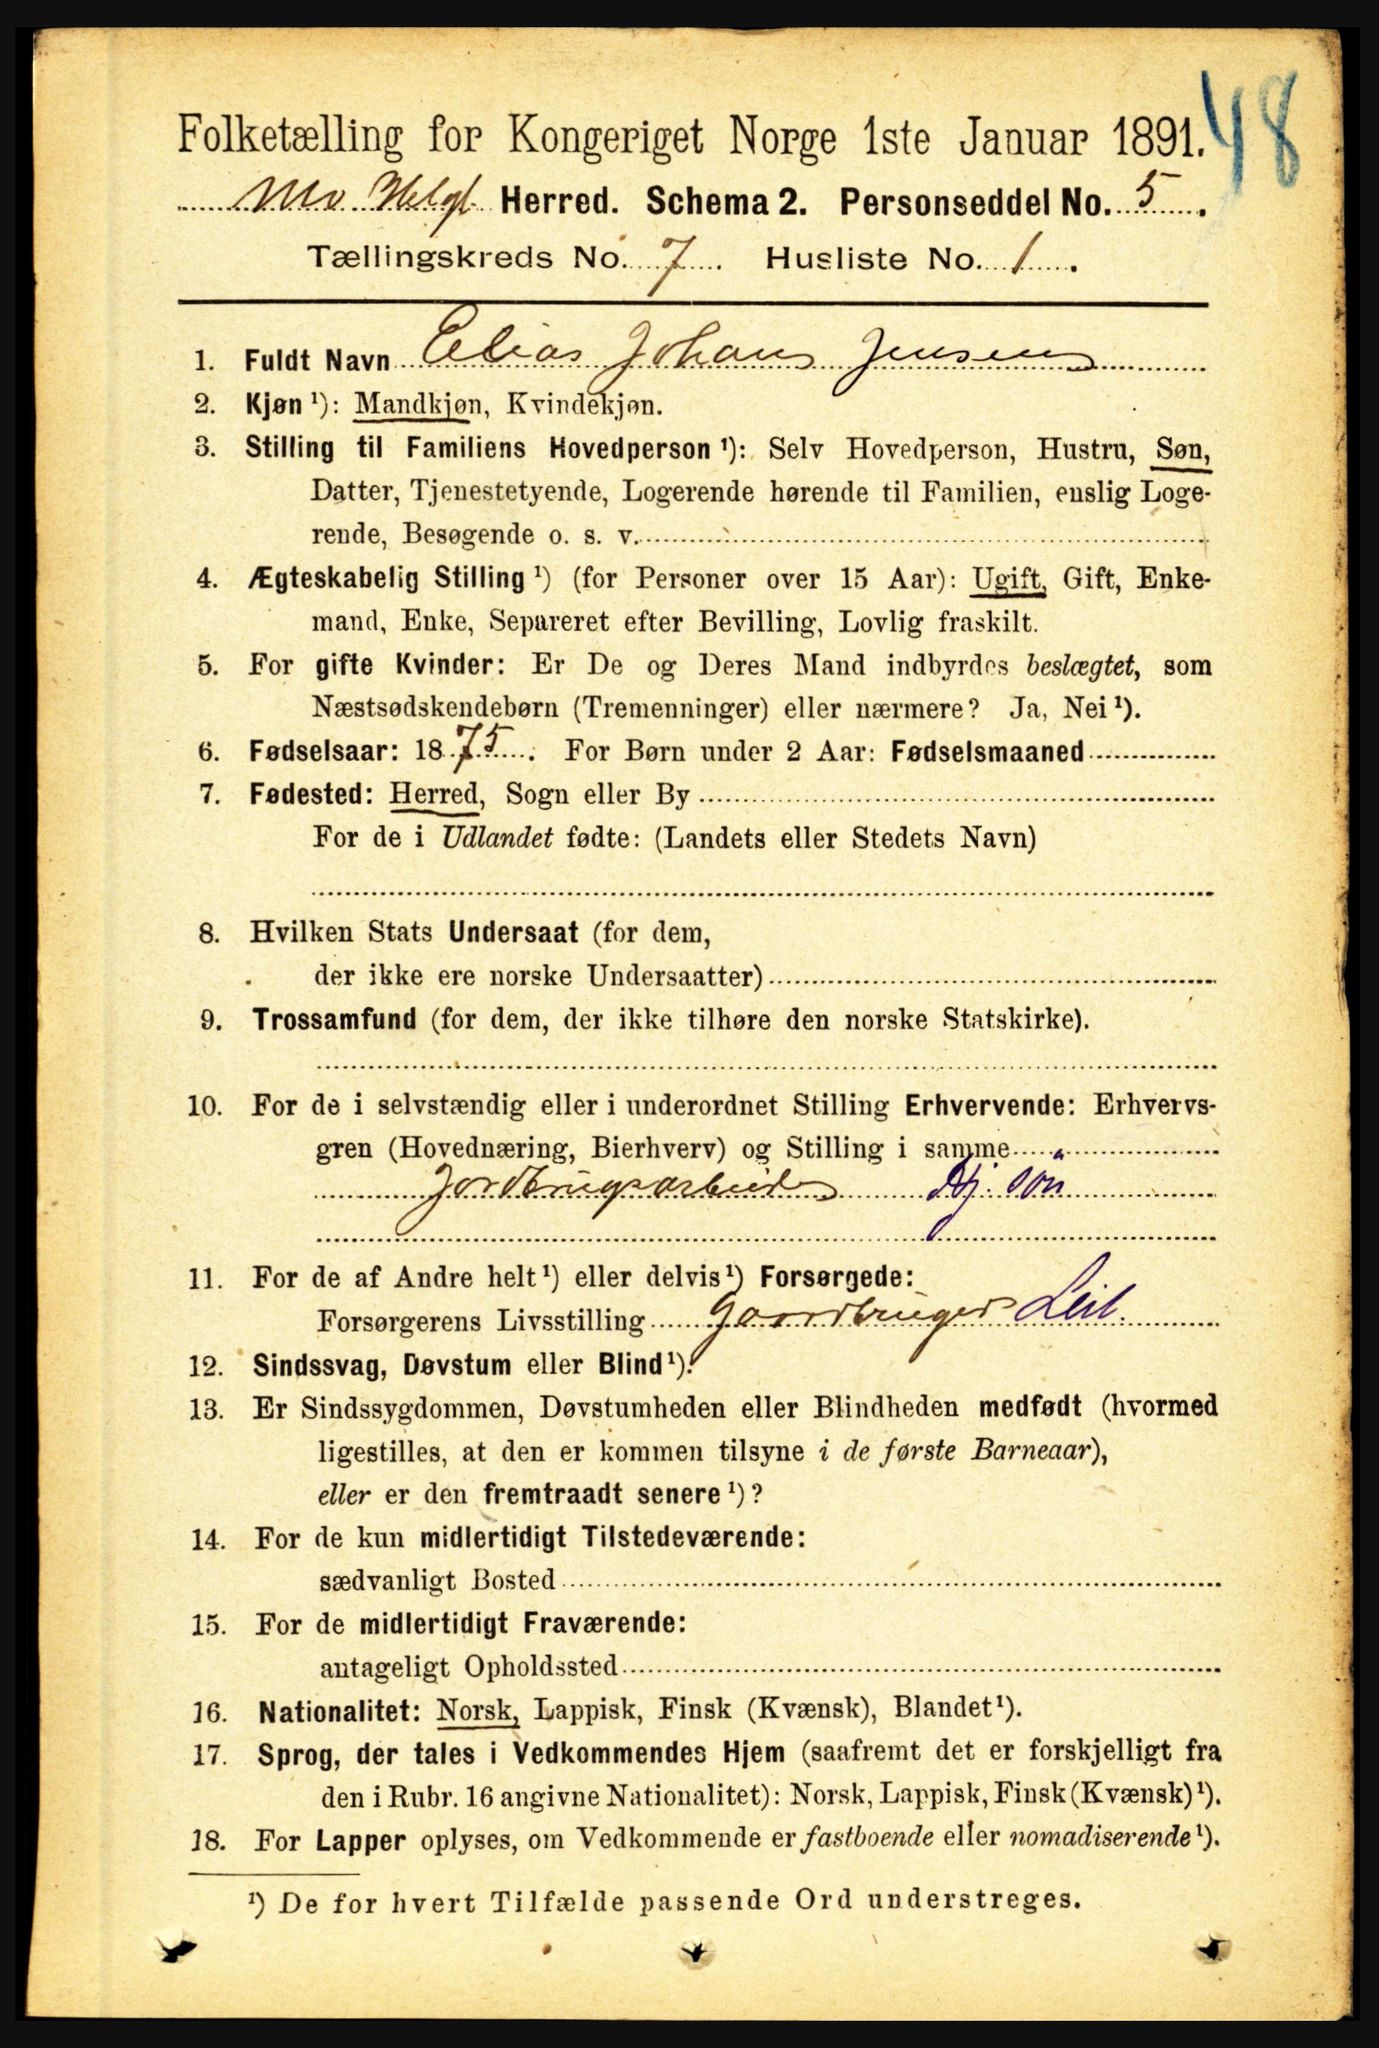 48
Folketælling for Kongeriget Norge 1ste Januar 1891.
Mo Helgl Herred. Schema 2. Personseddel No. 5.
Tællingskreds No. 7. Husliste No. 1.
1. Fuldt Navn Elias Johan Jensen
2. Kjøn ¹): Mandkjøn, Kvindekjøn.
3. Stilling til Familiens Hovedperson ¹): Selv Hovedperson, Hustru, Søn,
Datter, Tjenestetyende, Logerende hørende til Familien, enslig Loge-
rende, Besøgende o. s. v.
4. Ægteskabelig Stilling ¹) (for Personer over 15 Aar): Ugift, Gift, Enke-
mand, Enke, Separeret efter Bevilling, Lovlig fraskilt.
5. For gifte Kvinder: Er De og Deres Mand indbyrdes beslægtet, som
Næstsødskendebørn (Tremenninger) eller nærmere? Ja, Nei ¹).
6. Fødselsaar: 1875. For Børn under 2 Aar: Fødselsmaaned
7. Fødested: Herred, Sogn eller By
For de i Udlandet fødte: (Landets eller Stedets Navn)
8. Hvilken Stats Undersaat (for dem,
der ikke ere norske Undersaatter)
9. Trossamfund (for dem, der ikke tilhøre den norske Statskirke).
10. For de i selvstændig eller i underordnet Stilling Erhvervende: Erhvervs-
gren (Hovednæring, Bierhverv) og Stilling i samme
Jordbrugsarbeide Hj. søn
11. For de af Andre helt ¹) eller delvis ¹) Forsørgede:
Forsørgerens Livsstilling Gaardbruger Leil.
12. Sindssvag, Døvstum eller Blind ¹).
13. Er Sindssygdommen, Døvstumheden eller Blindheden medfødt (hvormed
ligestilles, at den er kommen tilsyne i de første Barneaar),
eller er den fremtraadt senere ¹)?
14. For de kun midlertidigt Tilstedeværende:
sædvanligt Bosted
15. For de midlertidigt Fraværende:
antageligt Opholdssted
16. Nationalitet: Norsk, Lappisk, Finsk (Kvænsk), Blandet ¹).
17. Sprog, der tales i Vedkommendes Hjem (saafremt det er forskjelligt fra
den i Rubr. 16 angivne Nationalitet): Norsk, Lappisk, Finsk (Kvænsk) ¹).
18. For Lapper oplyses, om Vedkommende er fastboende eller nomadiserende ¹).
¹) De for hvert Tilfælde passende Ord understreges.